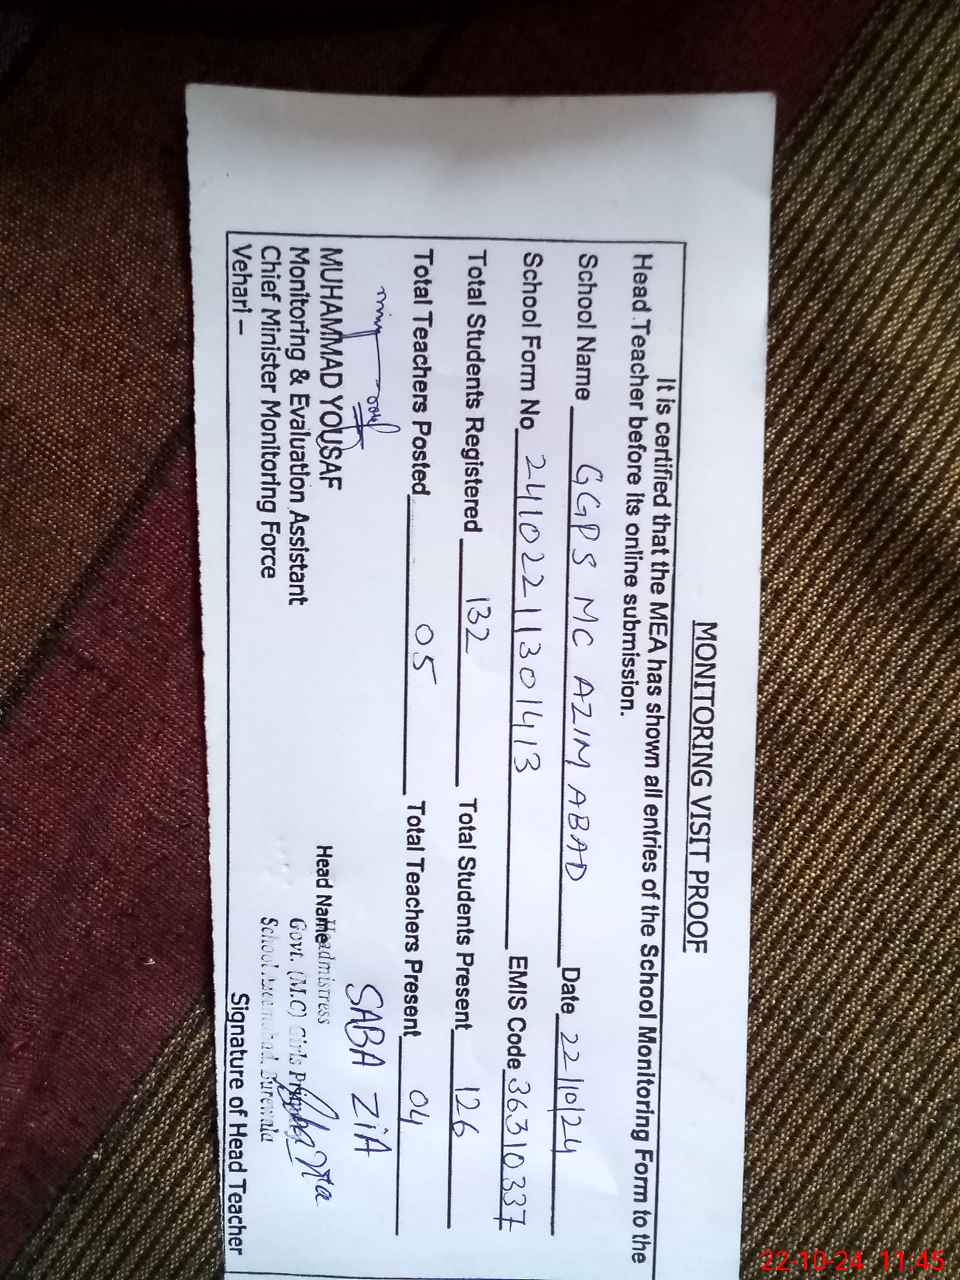 MONITORING VISIT PROOF
It is certified that the MEA has shown all entries of the School Monitoring Form to the
Head Teacher before its online submission.
School Name GGPS MC AZIM ABAD Date 22/10/24
School Form No 24102211301413 EMIS Code 36310337
Total Students Registered 132 Total Students Present 126
Total Teachers Posted 05 Total Teachers Present 04
SABA ZiA
MUHAMMAD YOUSAF
Monitoring & Evaluation Assistant
Chief Minister Monitoring Force
Vehari –
Head Name
Headmistress
Govt. (M.C) Girls Primary
School Burewala
Signature of Head Teacher
22-10-24 11:45